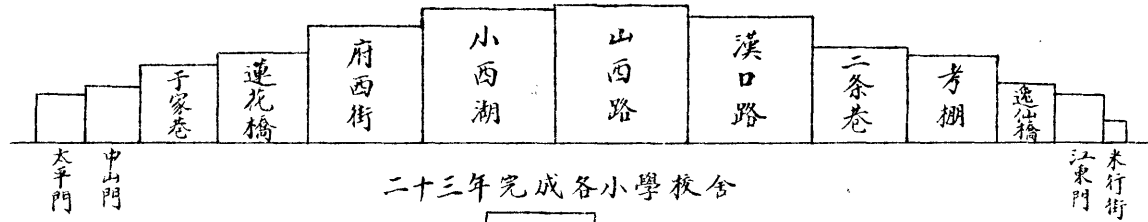 太平門
中山門
于家巷
蓮花橋
府西街
小西湖
山西路
漢口路
二条巷
考棚
逸仙橋
江東門
米行街
二十三年完成各小學校舍